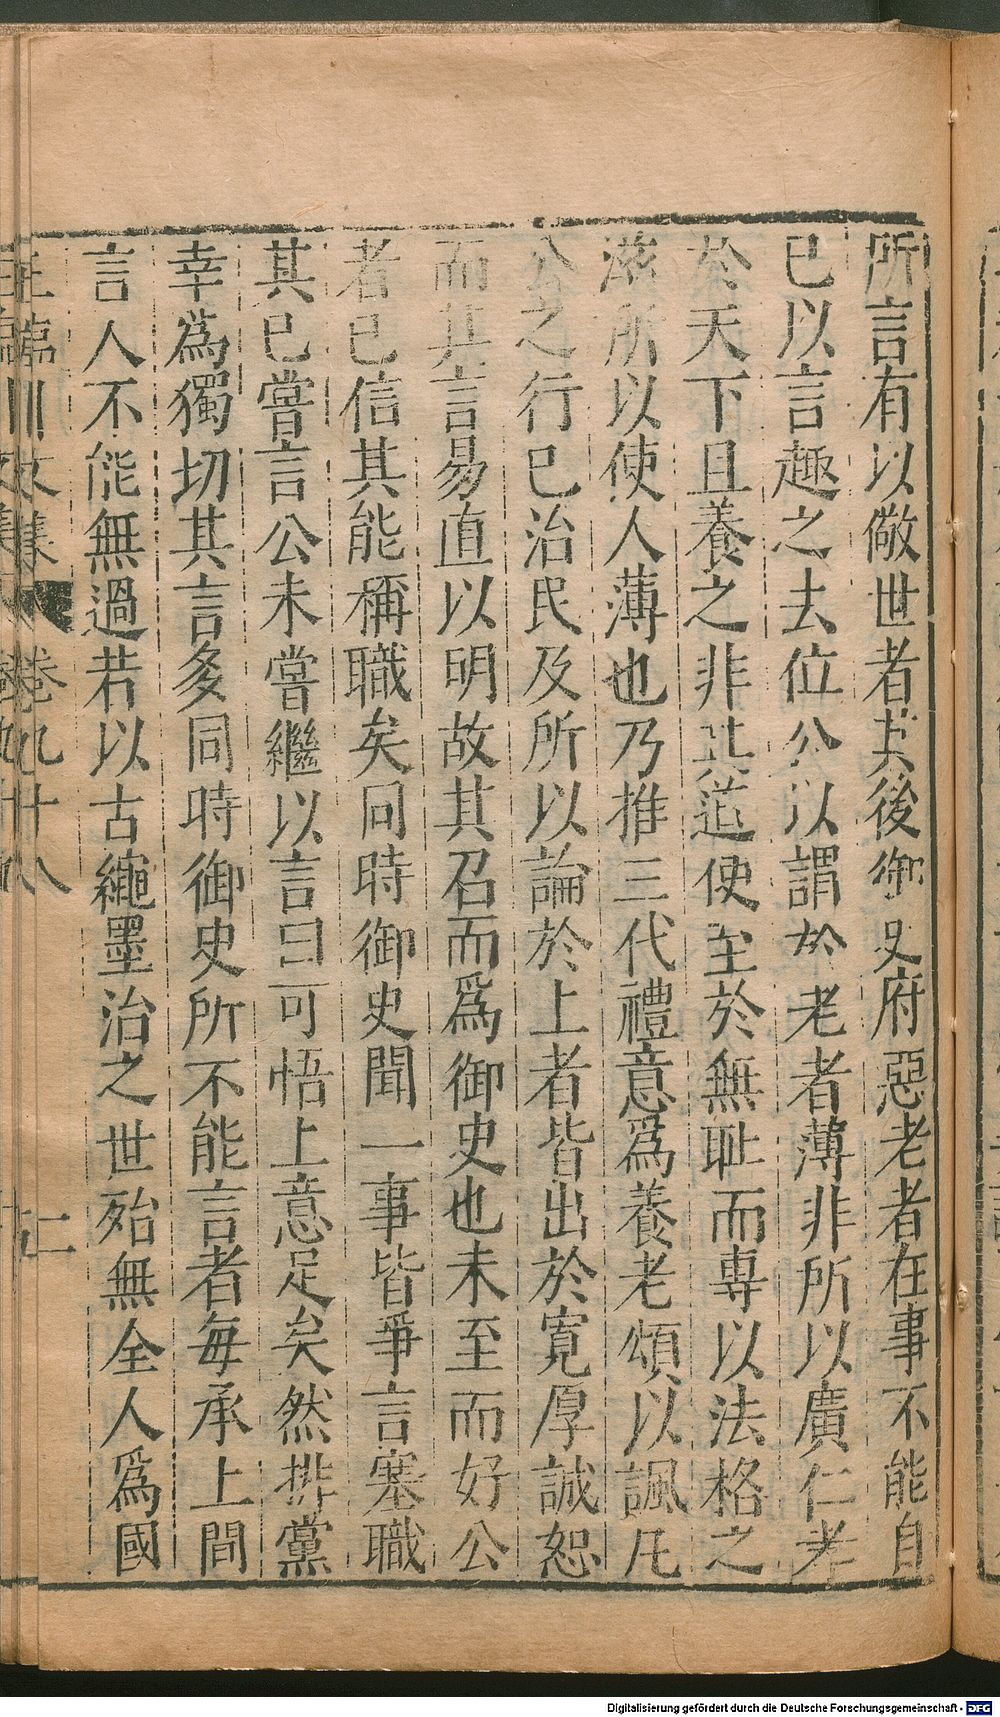 所言有以儆世者其後御史府惡老者在事不能自
已以言趣之去位公以謂於老者薄非所以廣仁孝
於天下且養之非其道使至於無耻而專以法格之
滋所以使人薄也乃推三代禮意爲養老頌以諷凡
公之行已治民及所以論於上者皆出於寛厚誠恕
而其言易直以明故其召而爲御史也未至而好公
者已信其能稱職矣同時御史聞一事皆爭言塞職
其已嘗言公未嘗繼以言曰可悟上意足矣然排黨
幸爲獨切其言多同時御史所不能言者每承上間
言人不能無過若以古繩墨治之世殆無全人爲國
王臨川文集 卷九十八 二
Digitalisierung gefördert durch die Deutsche Forschungsgemeinschaft - DFG